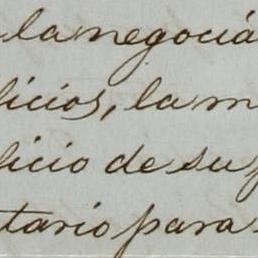 la negociá
licios, la m
licio de su p
tario para